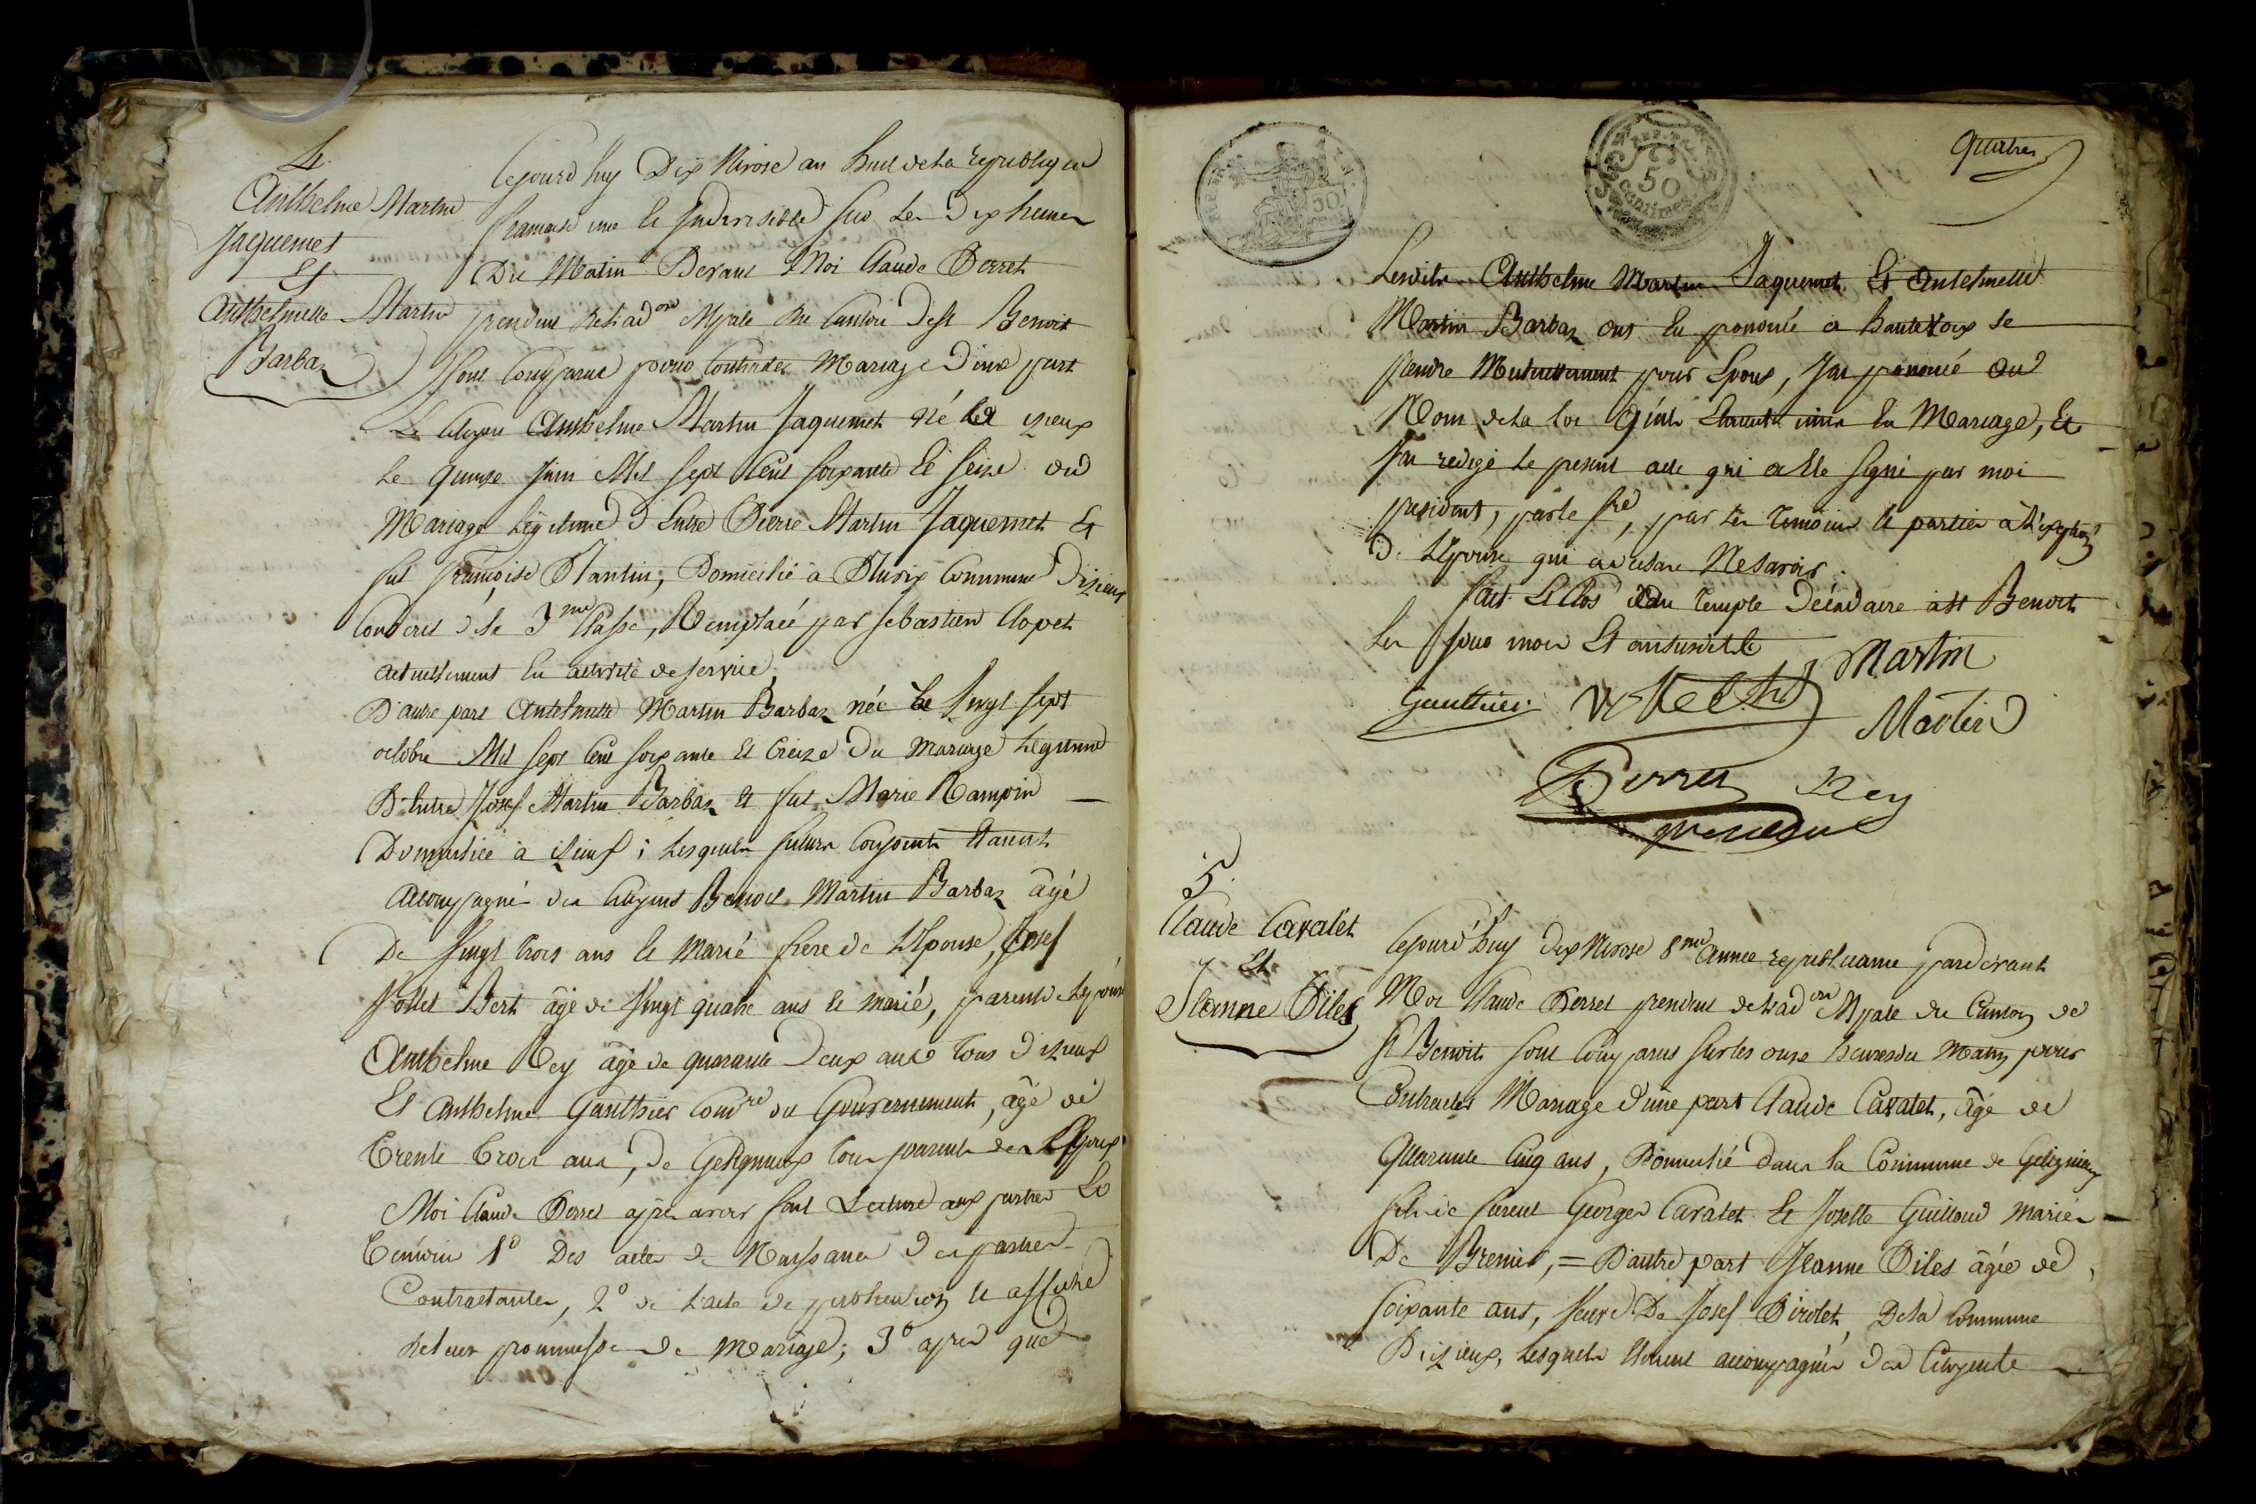 4.
Anthelme Martin
Jaquemet
Et
Anthelmette Martin
Barbaz
Cejourd'huy Dix Nivose an huit de la republique
francaise une et Indivisible sur les dix heures
Du Matin Devant Moi Claude Perret
président de l'ad.on Mpale du Canton de St Benoit
sont comparus pour Contracter Mariage D'une part
Le Citoyen Anthelme Martin Jaquemet né à izieux
le quinze juin Mil sept Cent soixante Et seize du
Mariage légitime D'Entre Pierre Martin Jaquemet Et
fut françoise Nantin, Domicilié a Plusix Commune D'izieux
Conscrit de la 3me Classe, Remplacé par sebastien Clopet
actuellement En activité de service
D'autre part Antelmette Martin Barbaz née Le Vingt sept
octobre Mil sept Cent soixante Et treize Du Mariage Légitime
D'Entre Josef Martin Barbaz Et fut Marie Rampin
Domiciliée à izieux ; Lesquels futurs Conjoints Etaient
accompagné des Citoyens Benoit Martin Barbaz âgé
De Vingt trois ans Et Marié frere de L'Epouse, Josef
Bert âgé de Vingt quatre ans Et marié, parent de Lepouse
Anthelme Rey âgé de quarante Deux ans tous D'izieux
Et Anthelme Gauthier Comre du Gouvernement, âgé de
Trente trois ans, de Gelignieux tous parents des Epoux
Moi Claude Perret après avoir fait Lecture aux parties Et
temoins 1º Des actes de Naissance des parties
Contractantes, 2º de l'acte de publication et affiche
de leur promesse de Mariage ; 3º après que
Quatre
50
Centimes
Lesdits Anthelme Martin Jaquemet Et Antelmette
Martin Barbaz ont Eu prononcé a haute Voix se
prendre Mutuellement pour Epoux, J'ai prononcé au
Nom de la loi qu'ils Etaient unis En Mariage, Et
J'ai redigé le present acte qui a Eté signé par moi
president, par le sre, par les temoins et parties a L'exeption
de L'Epouse qui a declaré Ne savoir.
fait Et Clos au Temple Décadaire a St Benoit
Les jour mois Et an susdits
Gauthier
Martin
Martin
Perret
Rey
president
5.
Claude Cavalet
Et
Jeanne Piles
Cejourd'huy dix Nivose 8me année republicaine pardevant
Moi Claude Perret president de l'ad.on Mpale du Canton de
St Benoit sont comparus sur les onze heures du Matin pour
Contracter Mariage D'une part Claude Cavalet, âgé de
Quarante Cinq ans, Domicilié dans la Commune de Gelignieux
fils de furent George Cavalet Et Josette Guilloud Mariés
De Brenier, = D'autre part Jeanne Piles âgée de
soixante ans, Veuve De Josef Pirolet, De la Commune
D'izieux, Lesquels Etaient accompagnés des Citoyens